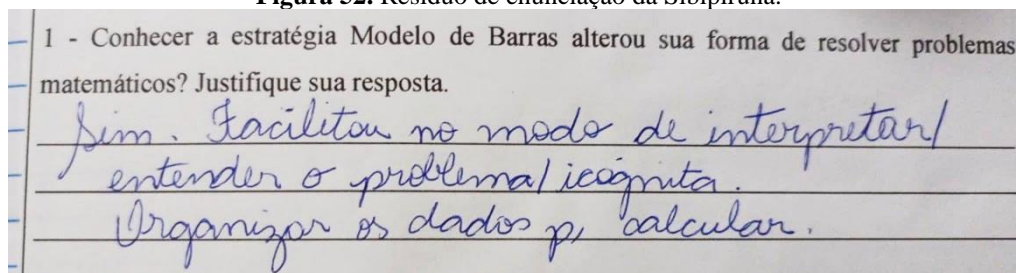 Figura 52. Resíduo de enunciação da Sibipiruna.
1 - Conhecer a estratégia Modelo de Barras alterou sua forma de resolver problemas
matemáticos? Justifique sua resposta.
Sim. Facilitou no modo de interpretar/
entender o problema/ icógnita.
Organizar os dados p/ calcular.